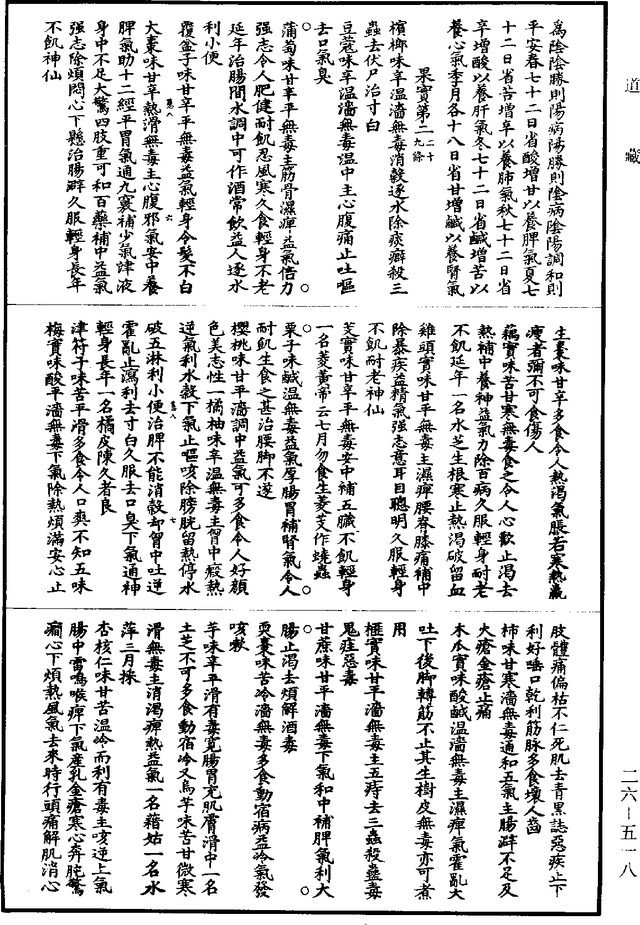 道藏
為陰陰勝則陽病陽勝則陰病陰陽調和則
平安春七十二日省酸增甘以養脾氣夏七
十二日省苦增辛以養肺氣秋七十二日省
辛增酸以養肝氣冬七十二日省鹹增苦以
養心氣季月各十八日省甘增鹹以養腎氣
果實第二二十九條
檳榔味辛溫澁無毒消穀逐水除痰癖殺三
蟲去伏尸治寸白
豆蔻味辛溫澁無毒溫中主心腹痛止吐嘔
去口氣臭
蒲萄味甘辛平無毒主筋骨濕痺益氣倍力
强志令人肥健耐飢忍風寒久食輕身不老
延年治腸間水調中可作酒常飲益人逐水
利小便
覆盆子味甘辛平無毒益氣輕身令髮不白
卷八 六
大棗味甘辛熱滑無毒主心腹邪氣安中養
脾氣助十二經平胃氣通九竅補少氣津液
身中不足大驚四肢重可和百藥補中益氣
强志除煩悶心下懸治腸澼久服輕身長年
不飢神仙
生棗味甘辛多食令人熱渴氣脹若寒熱羸
瘦者彌不可食傷人
藕實味苦甘寒無毒食之令人心歡止渴去
熱補中養神益氣力除百病久服輕身耐老
不飢延年一名水芝生根寒止熱渴破留血
雞頭實味甘平無毒主濕痺腰脊膝痛補中
除暴疾益精氣强志意耳目聰明久服輕身
不飢耐老神仙
芰實味甘辛平無毒安中補五臟不飢輕身
一名菱黃帝云七月勿食生菱芰作蟯蟲
栗子味鹹溫無毒益氣厚腸胃補腎氣令人
耐飢生食之甚治腰脚不遂
櫻桃味甘平澁調中益氣可多食令人好顏
色美志性 橘柚味辛溫無毒主胷中瘕熱
逆氣利水穀下氣止嘔咳除膀胱留熱停水
卷八 七
破五淋利小便治脾不能消穀却胷中吐逆
霍亂止瀉利去寸白久服去口臭下氣通神
輕身長年一名橘皮陳久者良
津符子味苦平滑多食令人口爽不知五味
梅實味酸平澁無毒下氣除熱煩滿安心止
肢體痛偏枯不仁死肌去青黑誌惡疾止下
利好唾口乾利筋脉多食壞人齒
柿味甘寒澁無毒通和五氣主腸澼不足及
火瘡金瘡止痛
木瓜實味酸鹹溫澁無毒主濕痺氣霍亂大
吐下後脚轉筋不止其生樹皮無毒亦可煮
用
榧實味甘平澁無毒主五痔去三蟲殺蠱毒
鬼疰惡毒
甘蔗味甘平澁無毒下氣和中補脾氣利大
腸止渴去煩解酒毒
耎棗味苦冷澁無毒多食動宿病益冷氣發
咳嗽
芋味辛平滑有毒寬腸胃充肌膚滑中一名
土芝不可多食動宿冷又烏芋味苦甘微寒
滑無毒主消渴痺熱益氣一名藉姑一名水
萍三月採
杏核仁味甘苦溫冷而利有毒主咳逆上氣
腸中雷鳴喉痺下氣産乳金瘡寒心奔肫驚
癎心下煩熱風氣去來時行頭痛解肌消心
二六-五一八